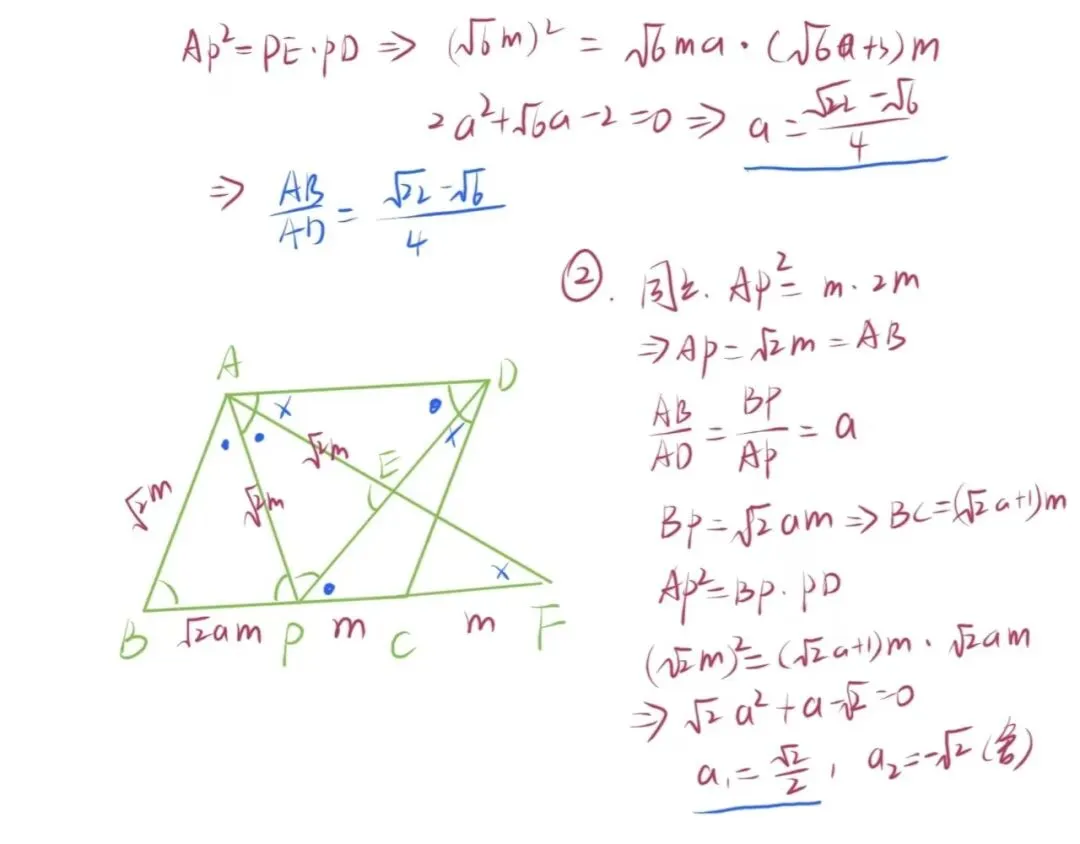 AP²=PE·PD ⇒ (√6m)² = √6ma·(√6a+3)m
2a²+√6a-2=0 ⇒ a=(√22-√6)/4
⇒ AB/AD = (√22-√6)/4
②. 同上. AP²= m·2m
⇒AP=√2m=AB
AB/AD = BP/AP = a
BP=√2am⇒BC=(√2a+1)m
AP²=BP·PD
(√2m)²=(√2a+1)m·√2am
⇒ √2a²+a-√2=0
a₁=√2/2, a₂=-√2(舍)
A
D
x
x
√2m
E
√2m
√2m
x
B
√2am
P
m
C
m
F